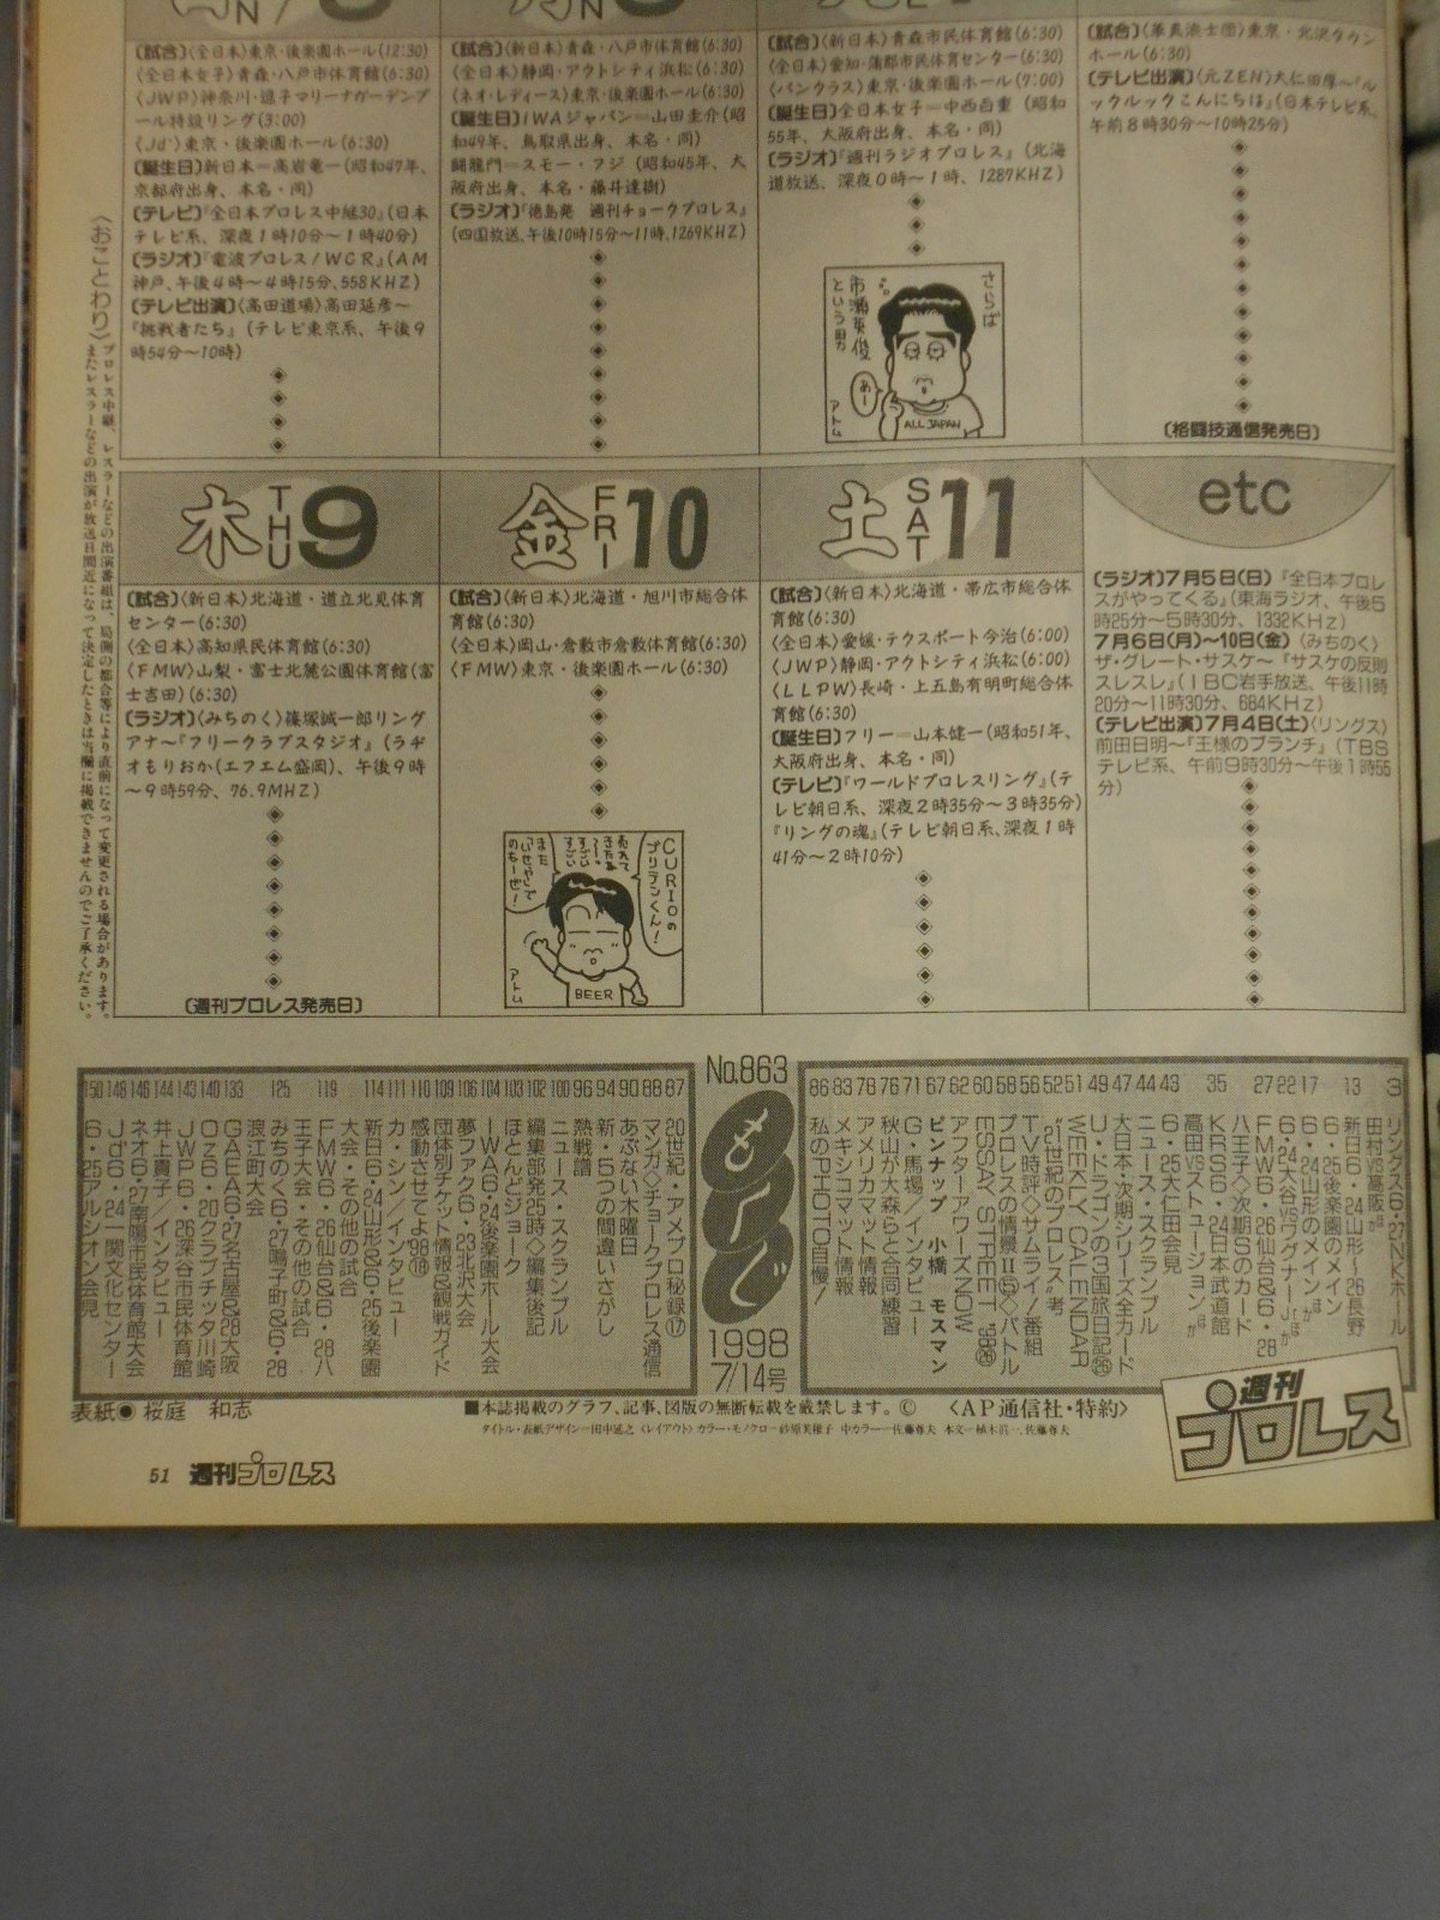 〔試合〕〈全日本〉東京・後楽園ホール(12:30)
〈全日本女子〉青森・八戸市体育館(6:30)
〈JWP〉神奈川・逗子マリーナガーデンプ
ール特設リング(3:00)
〈Jd'〉東京・後楽園ホール(6:30)
〔誕生日〕新日本=高岩竜一(昭和47年、
京都府出身、本名・同)
〔テレビ〕『全日本プロレス中継30』(日本
テレビ系、深夜1時10分〜1時40分)
〔ラジオ〕『電波プロレス!WCR』(AM
神戸、午後4時〜4時15分、558KHZ)
〔テレビ出演〕〈高田道場〉高田延彦〜
『挑戦者たち』(テレビ東京系、午後9
時54分〜10時)
〔試合〕〈新日本〉青森・八戸市体育館(6:30)
〈全日本〉静岡・アクトシティ浜松(6:30)
〈ネオ・レディース〉東京・後楽園ホール(6:30)
〔誕生日〕IWAジャパン=山田圭介(昭
和49年、鳥取県出身、本名・同)
闘龍門=スモー・フジ(昭和45年、大
阪府出身、本名・藤井達樹)
〔ラジオ〕『徳島発 週刊チョークプロレス』
(四国放送、午後10時15分〜11時、1269KHZ)
〔試合〕〈新日本〉青森市民体育館(6:30)
〈全日本〉愛知・蒲郡市民体育センター(6:30)
〈パンクラス〉東京・後楽園ホール(7:00)
〔誕生日〕全日本女子=中西百重(昭和
55年、大阪府出身、本名・同)
〔ラジオ〕『週刊ラジオプロレス』(北海
道放送、深夜0時〜1時、1287KHZ)
さらば
市浦英俊
という男
あー
ALL JAPAN
アトム
ホール(6:30)
〔テレビ出演〕〈元ZEN〉大仁田厚〜『ル
ックルックこんにちは』(日本テレビ系、
午前8時30分〜10時25分)
〔格闘技通信発売日〕
〈おことわり〉プロレス中継、レスラーなどの出演番組は、局側の都合等により直前になって変更される場合があります。
またレスラーなどの出演が放送日間近になって決定したときは当欄に掲載できませんのでご了承ください。
木 THU 9
〔試合〕〈新日本〉北海道・道立北見体育
センター(6:30)
〈全日本〉高知県民体育館(6:30)
〈FMW〉山梨・富士北麓公園体育館(富
士吉田)(6:30)
〔ラジオ〕〈みちのく〉篠塚誠一郎リング
アナ〜『フリークラブスタジオ』(ラヂ
オもりおか(エフエム盛岡)、午後9時
〜9時59分、76.9MHZ)
〔週刊プロレス発売日〕
金 FRI 10
〔試合〕〈新日本〉北海道・旭川市総合体
育館(6:30)
〈全日本〉岡山・倉敷市倉敷体育館(6:30)
〈FMW〉東京・後楽園ホール(6:30)
CURIOの
ブリテンくん!
BEER
アトム
土 SAT 11
〔試合〕〈新日本〉北海道・帯広市総合体
育館(6:30)
〈全日本〉愛媛・テクスポート今治(6:00)
〈JWP〉静岡・アクトシティ浜松(6:00)
〈LLPW〉長崎・上五島有明町総合体
育館(6:30)
〔誕生日〕フリー=山本健一(昭和51年、
大阪府出身、本名・同)
〔テレビ〕『ワールドプロレスリング』(テ
レビ朝日系、深夜2時35分〜3時35分)
『リングの魂』(テレビ朝日系、深夜1時
41分〜2時10分)
etc
〔ラジオ〕7月5日(日)『全日本プロレ
スがやってくる』(東海ラジオ、午後5
時25分〜5時30分、1332KHz)
7月6日(月)〜10日(金)〈みちのく〉
ザ・グレート・サスケ〜『サスケの反則
スレスレ』(IBC岩手放送、午後11時
20分〜11時30分、684KHz)
〔テレビ出演〕7月4日(土)〈リングス〉
前田日明〜『王様のブランチ』(TBS
テレビ系、午前9時30分〜午後1時55
分)
3 リングス6・27NKホール
田村vs高阪ほか
13 新日6・24山形〜26長野
6・25後楽園のメイン
17 6・24山形のメインほか
22 6・24大谷vsワグナーJr.ほか
27 FMW6・26仙台&6・28
八王子◇次期Sのカード
35 KRS6・24日本武道館
高田vsストゥージョンほか
43 6・25大仁田会見
44 ニュース・スクランブル
47 大日本・次期シリーズ全カード
49 U・ドラゴンの3国旅日記
51 WEEKLY CALENDAR
52 “21世紀のプロレス”考
56 TV時評◇サムライ!番組
58 プロレスの情景II◇バトル
60 ESSAY STREET '98
62 アフターアワーズNOW
67 ピンナップ 小橋 モスマン
71 G・馬場/インタビュー
76 秋山が大森らと合同練習
78 アメリカマット情報
83 メキシコマット情報
86 私のPHOTO自慢!
No.863
もくじ
1998
7/14号
87 20世紀・アメプロ秘録⑰
88 マンガ◇チョークプロレス通信
90 あぶない木曜日
94 新・5つの間違いさがし
96 熱戦譜
100 ニュース・スクランブル
102 編集部発25時◇編集後記
103 ほとんどジョーク
104 IWA6・24後楽園ホール大会
106 夢ファク6・23北沢大会
109 団体別チケット情報&観戦ガイド
110 感動させてよ'98⑱
111 カ・シン/インタビュー
114 新日6・24山形&6・25後楽園
大会・その他の試合
119 FMW6・26仙台&6・28八
王子大会・その他の試合
125 みちのく6・27鳴子町&6・28
浪江町大会
133 GAEA6・27名古屋&28大阪
140 Oz6・20クラブチッタ川崎
143 JWP6・26深谷市民体育館
144 井上貴子/インタビュー
146 ネオ6・27南陽市民体育館大会
148 Jd'6・24一関文化センター
150 6・25アルシオン会見
表紙◉桜庭 和志
■本誌掲載のグラフ、記事、図版の無断転載を厳禁します。Ⓒ 〈AP通信社・特約〉
タイトル・表紙デザイン=田中延之〈レイアウト〉カラー・モノクロ=砂原美穂子 中カラー=佐藤尊夫 本文=植木眞一、佐藤尊夫
週刊プロレス
51 週刊プロレス